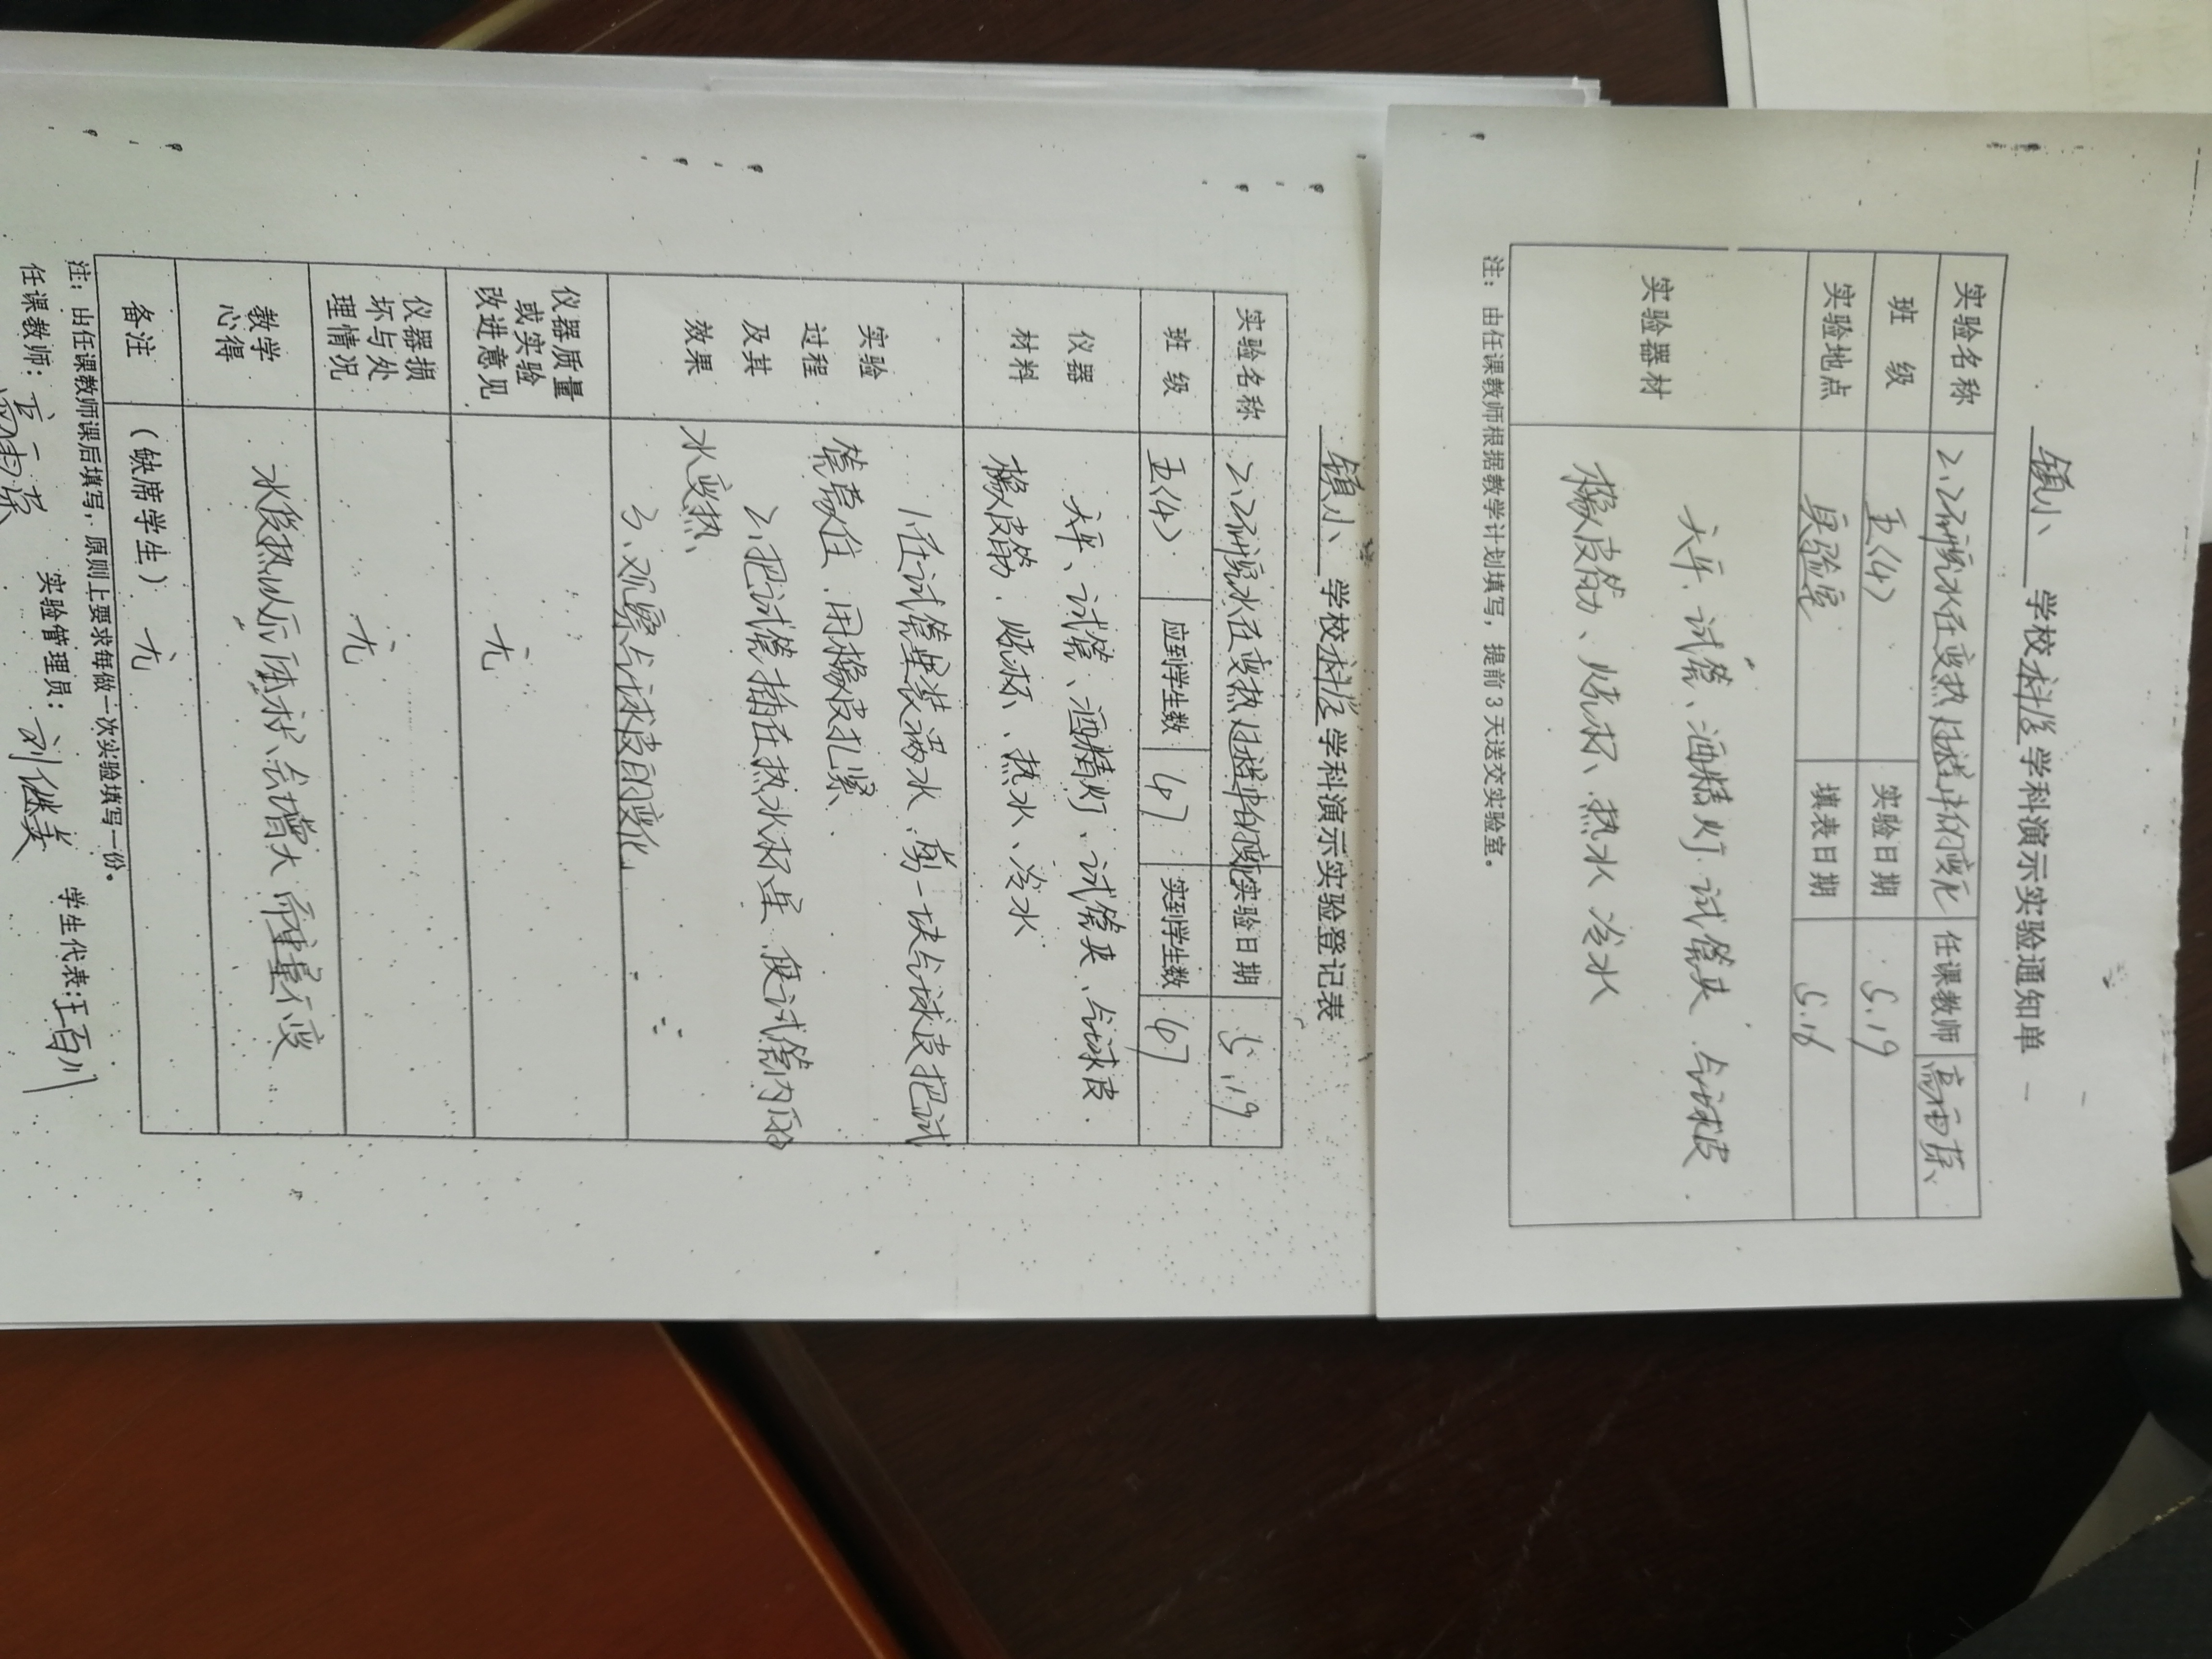 镇小 学校 科学 学科演示实验通知单
实验名称 2.2研究水在变热过程中的变化 任课教师 高雨荪
班 级 五(4) 实验日期 5.19
实验地点 实验室 填表日期 5.16
实验器材 天平、试管、酒精灯、试管夹、气球皮、
橡皮筋、烧杯、热水、冷水
注：由任课教师根据教学计划填写，提前3天送交实验室。
镇小 学校 科学 学科演示实验登记表
实验名称 2.2研究水在变热过程中的变化 实验日期 5.19
班 级 五(4) 应到学生数 47 实到学生数 47
仪器
材料
天平、试管、酒精灯、试管夹、气球皮、
橡皮筋、烧杯、热水、冷水
实验
过程
及其
效果
1.在试管里装满水、剪一块气球皮把试
管蒙住，用橡皮扎紧.
2.把试管插在热水杯里、使试管内的
水变热、
3、观察气球皮的变化、
仪器质量
或实验
改进意见
无
仪器损
坏与处
理情况
无
教学
心得
水受热以后体积会增大而重量不变
备注 （缺席学生） 无
注：由任课教师课后填写，原则上要求每做一次实验填写一份。
任课教师： 高雨荪 实验管理员： 刘继美 学生代表：王百川